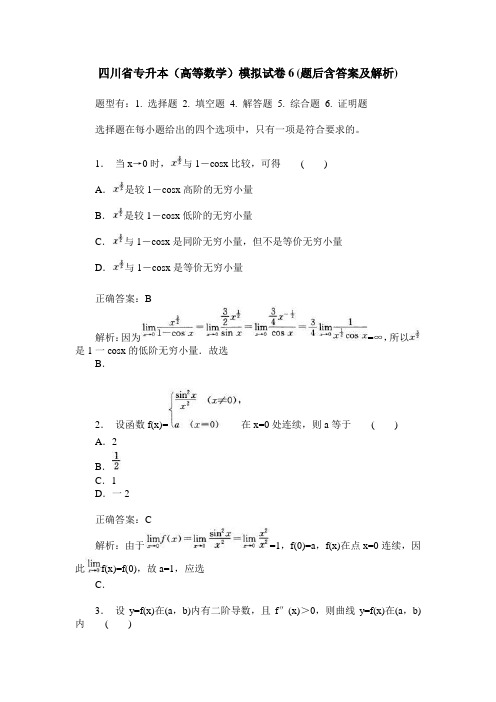 四川省专升本（高等数学）模拟试卷6(题后含答案及解析)
题型有：1. 选择题 2. 填空题 4. 解答题 5. 综合题 6. 证明题
选择题在每小题给出的四个选项中，只有一项是符合要求的。
1． 当x→0时，x^{3/2}与1－cosx比较，可得 ( )
A．x^{3/2}是较1－cosx高阶的无穷小量
B．x^{3/2}是较1－cosx低阶的无穷小量
C．x^{3/2}与1－cosx是同阶无穷小量，但不是等价无穷小量
D．x^{3/2}与1－cosx是等价无穷小量
正确答案：B
解析：因为lim_{x→0} x^{3/2}/(1－cos x)=lim_{x→0} (3/2 x^{1/2})/sin x=lim_{x→0} (3/4 x^{-1/2})/cos x=3/4 lim_{x→0} 1/(x^{1/2}cos x)=∞，所以x^{3/2}
是1一cosx的低阶无穷小量．故选
B．
2． 设函数f(x)={sin²x/x² (x≠0), a (x=0) 在x=0处连续，则a等于 ( )
A．2
B．1/2
C．1
D．一2
正确答案：C
解析：由于lim_{x→0} f(x)=lim_{x→0} sin²x/x²=lim_{x→0} x²/x²=1，f(0)=a，f(x)在点x=0连续，因
此lim_{x→0}f(x)=f(0)，故a=1，应选
C．
3． 设y=f(x)在(a，b)内有二阶导数，且f″(x)＞0，则曲线y=f(x)在(a，b)
内 ( )